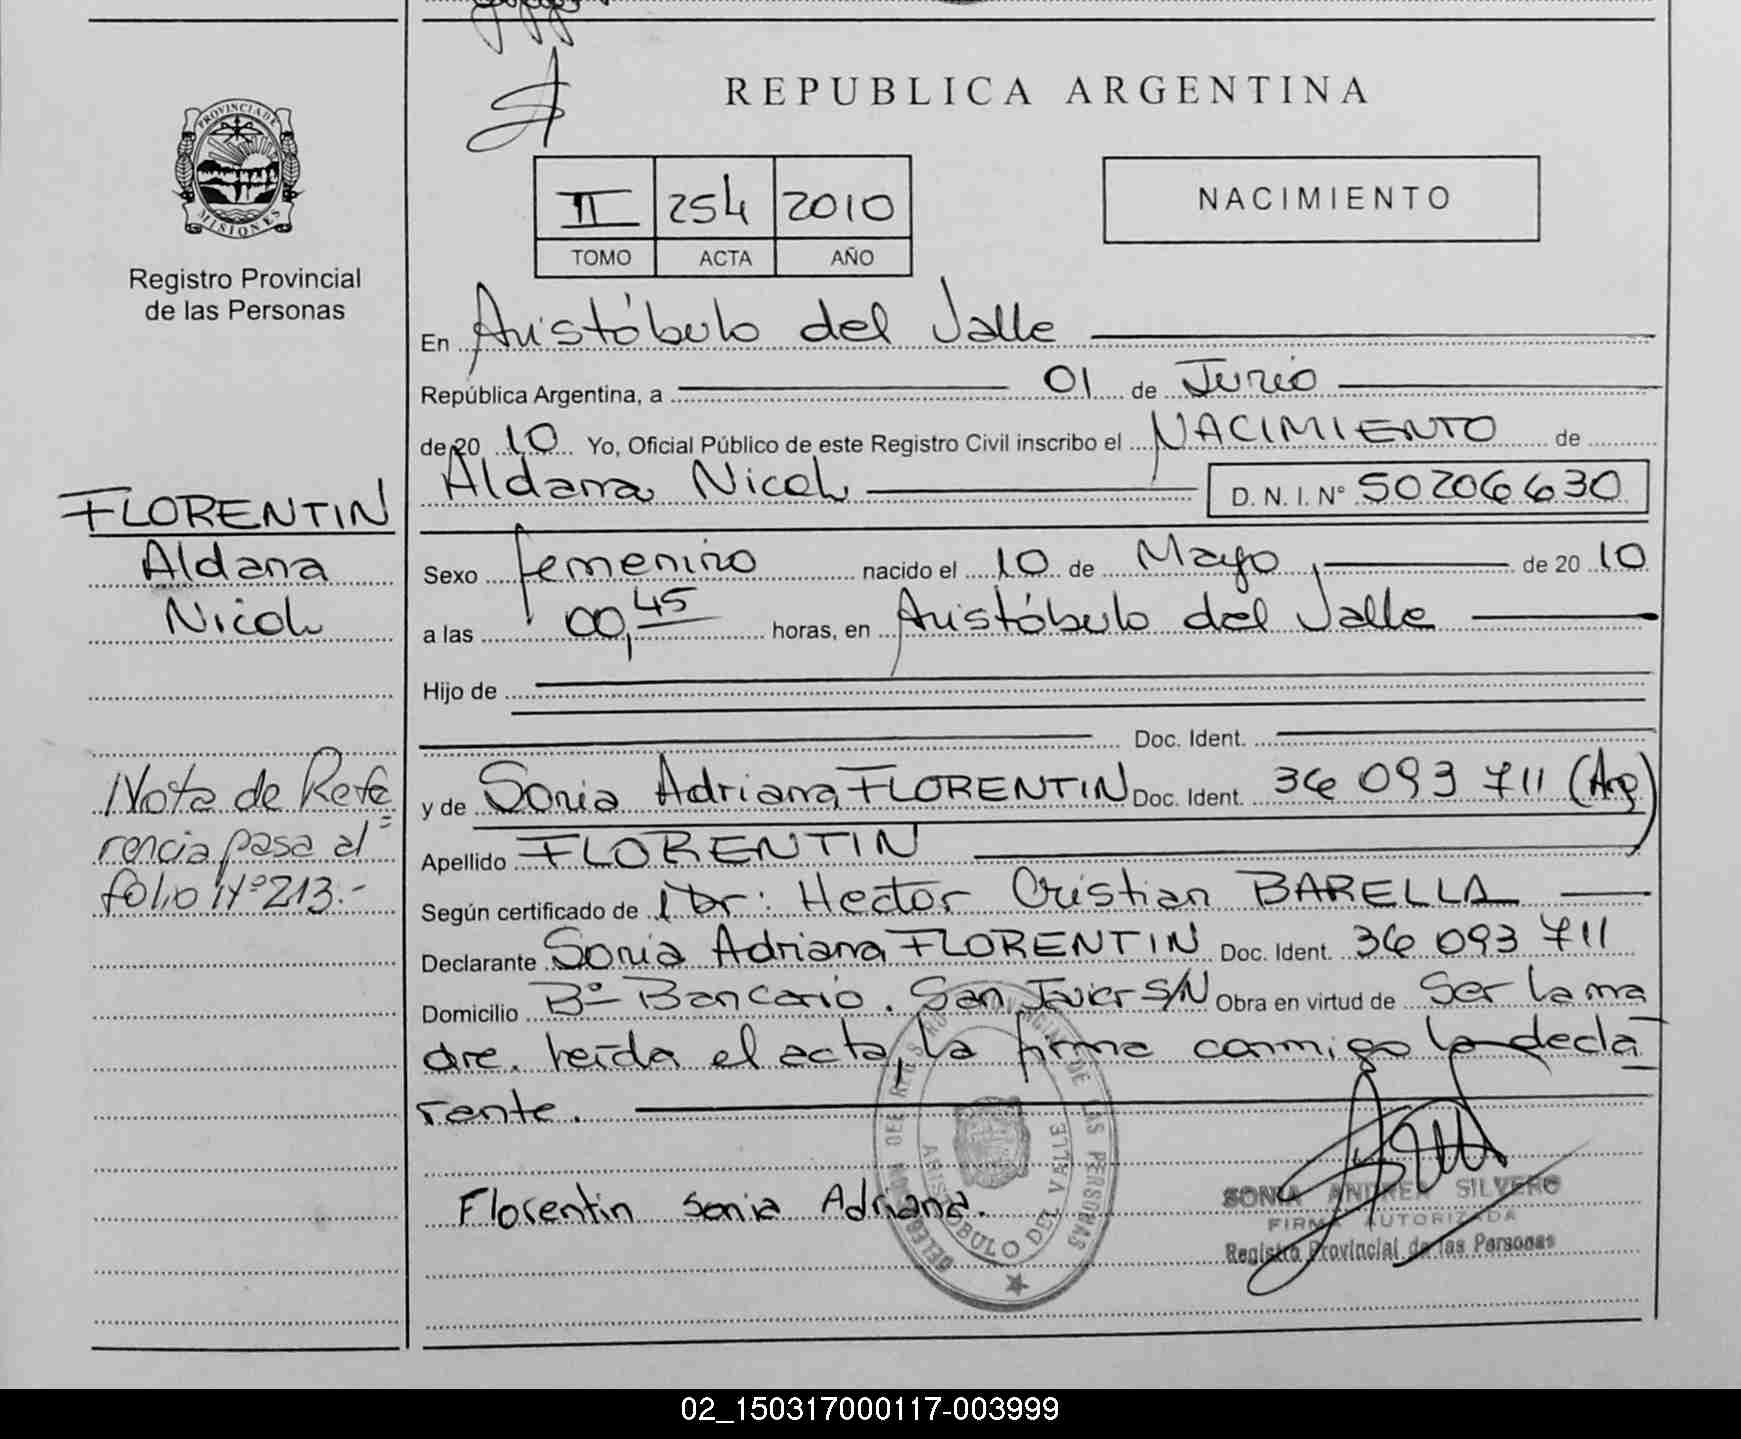 REPUBLICA ARGENTINA
PROVINCIA DE
MISIONES
Registro Provincial
de las Personas
II 254 2010
TOMO ACTA AÑO
NACIMIENTO
En Aristóbulo del Valle
República Argentina, a 01 de Junio
de 20 10 Yo, Oficial Público de este Registro Civil inscribo el NACIMIENTO de
Aldana Nicol D. N. I. Nº 50206630
FLORENTIN
Aldana
Nicol
Sexo femenino nacido el 10 de Mayo de 20 10
a las 00,45 horas, en Aristóbulo del Valle
Hijo de
Doc. Ident.
y de Sonia Adriana FLORENTIN Doc. Ident. 36 093 711 (Arg)
Apellido FLORENTIN
Nota de Refe
rencia pasa al
folio Nº 213.-
Según certificado de Dr: Hector Cristian BARELLA
Declarante Sonia Adriana FLORENTIN Doc. Ident. 36 093 711
Domicilio Bº Bancario. San Javier S/N Obra en virtud de Ser la ma
dre. leída el acta, la firma conmigo la decla
rante.
Florentin Sonia Adriana.
DELEGACION DEL REGISTRO PROVINCIAL DE LAS PERSONAS
ARISTOBULO DEL VALLE
SONIA ANDREA SILVERO
FIRMA AUTORIZADA
Registro Provincial de las Personas
02_150317000117-003999